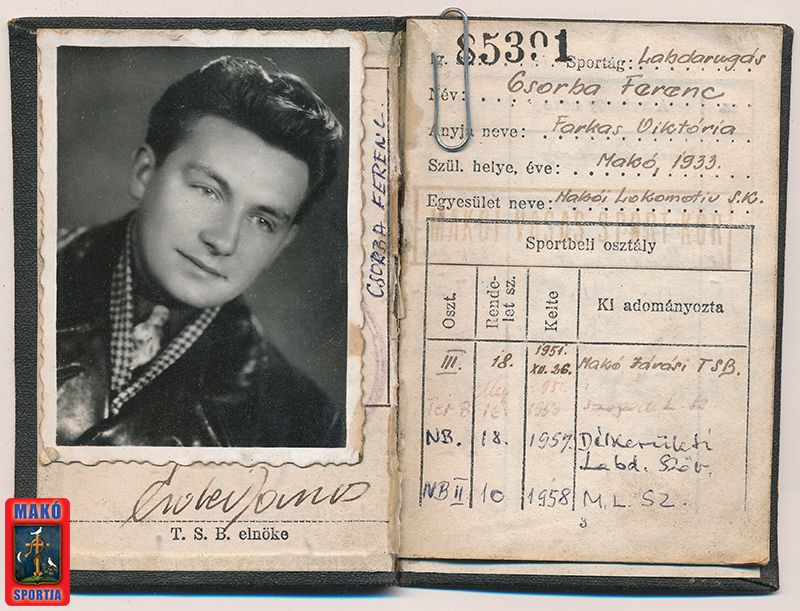 CSORBA FERENC
T. S. B. elnöke
MAKÓ
SPORTJA
Ig. 85391 Sportág: Labdarugás
Név: Csorba Ferenc
Anyja neve: Farkas Viktória
Szül. helye, éve: Makó, 1933.
Egyesület neve: Makói Lokomotiv S.K.
Sportbeli osztály
Oszt. Rendelet sz. Kelte Ki adományozta
III. 18. 1951. XII. 26. Makó Járási TSB.
Ter. B 16
NB. 18. 1957. Délkerületi Labd. Szöv.
NB II 10 1958 M. L. SZ.
3